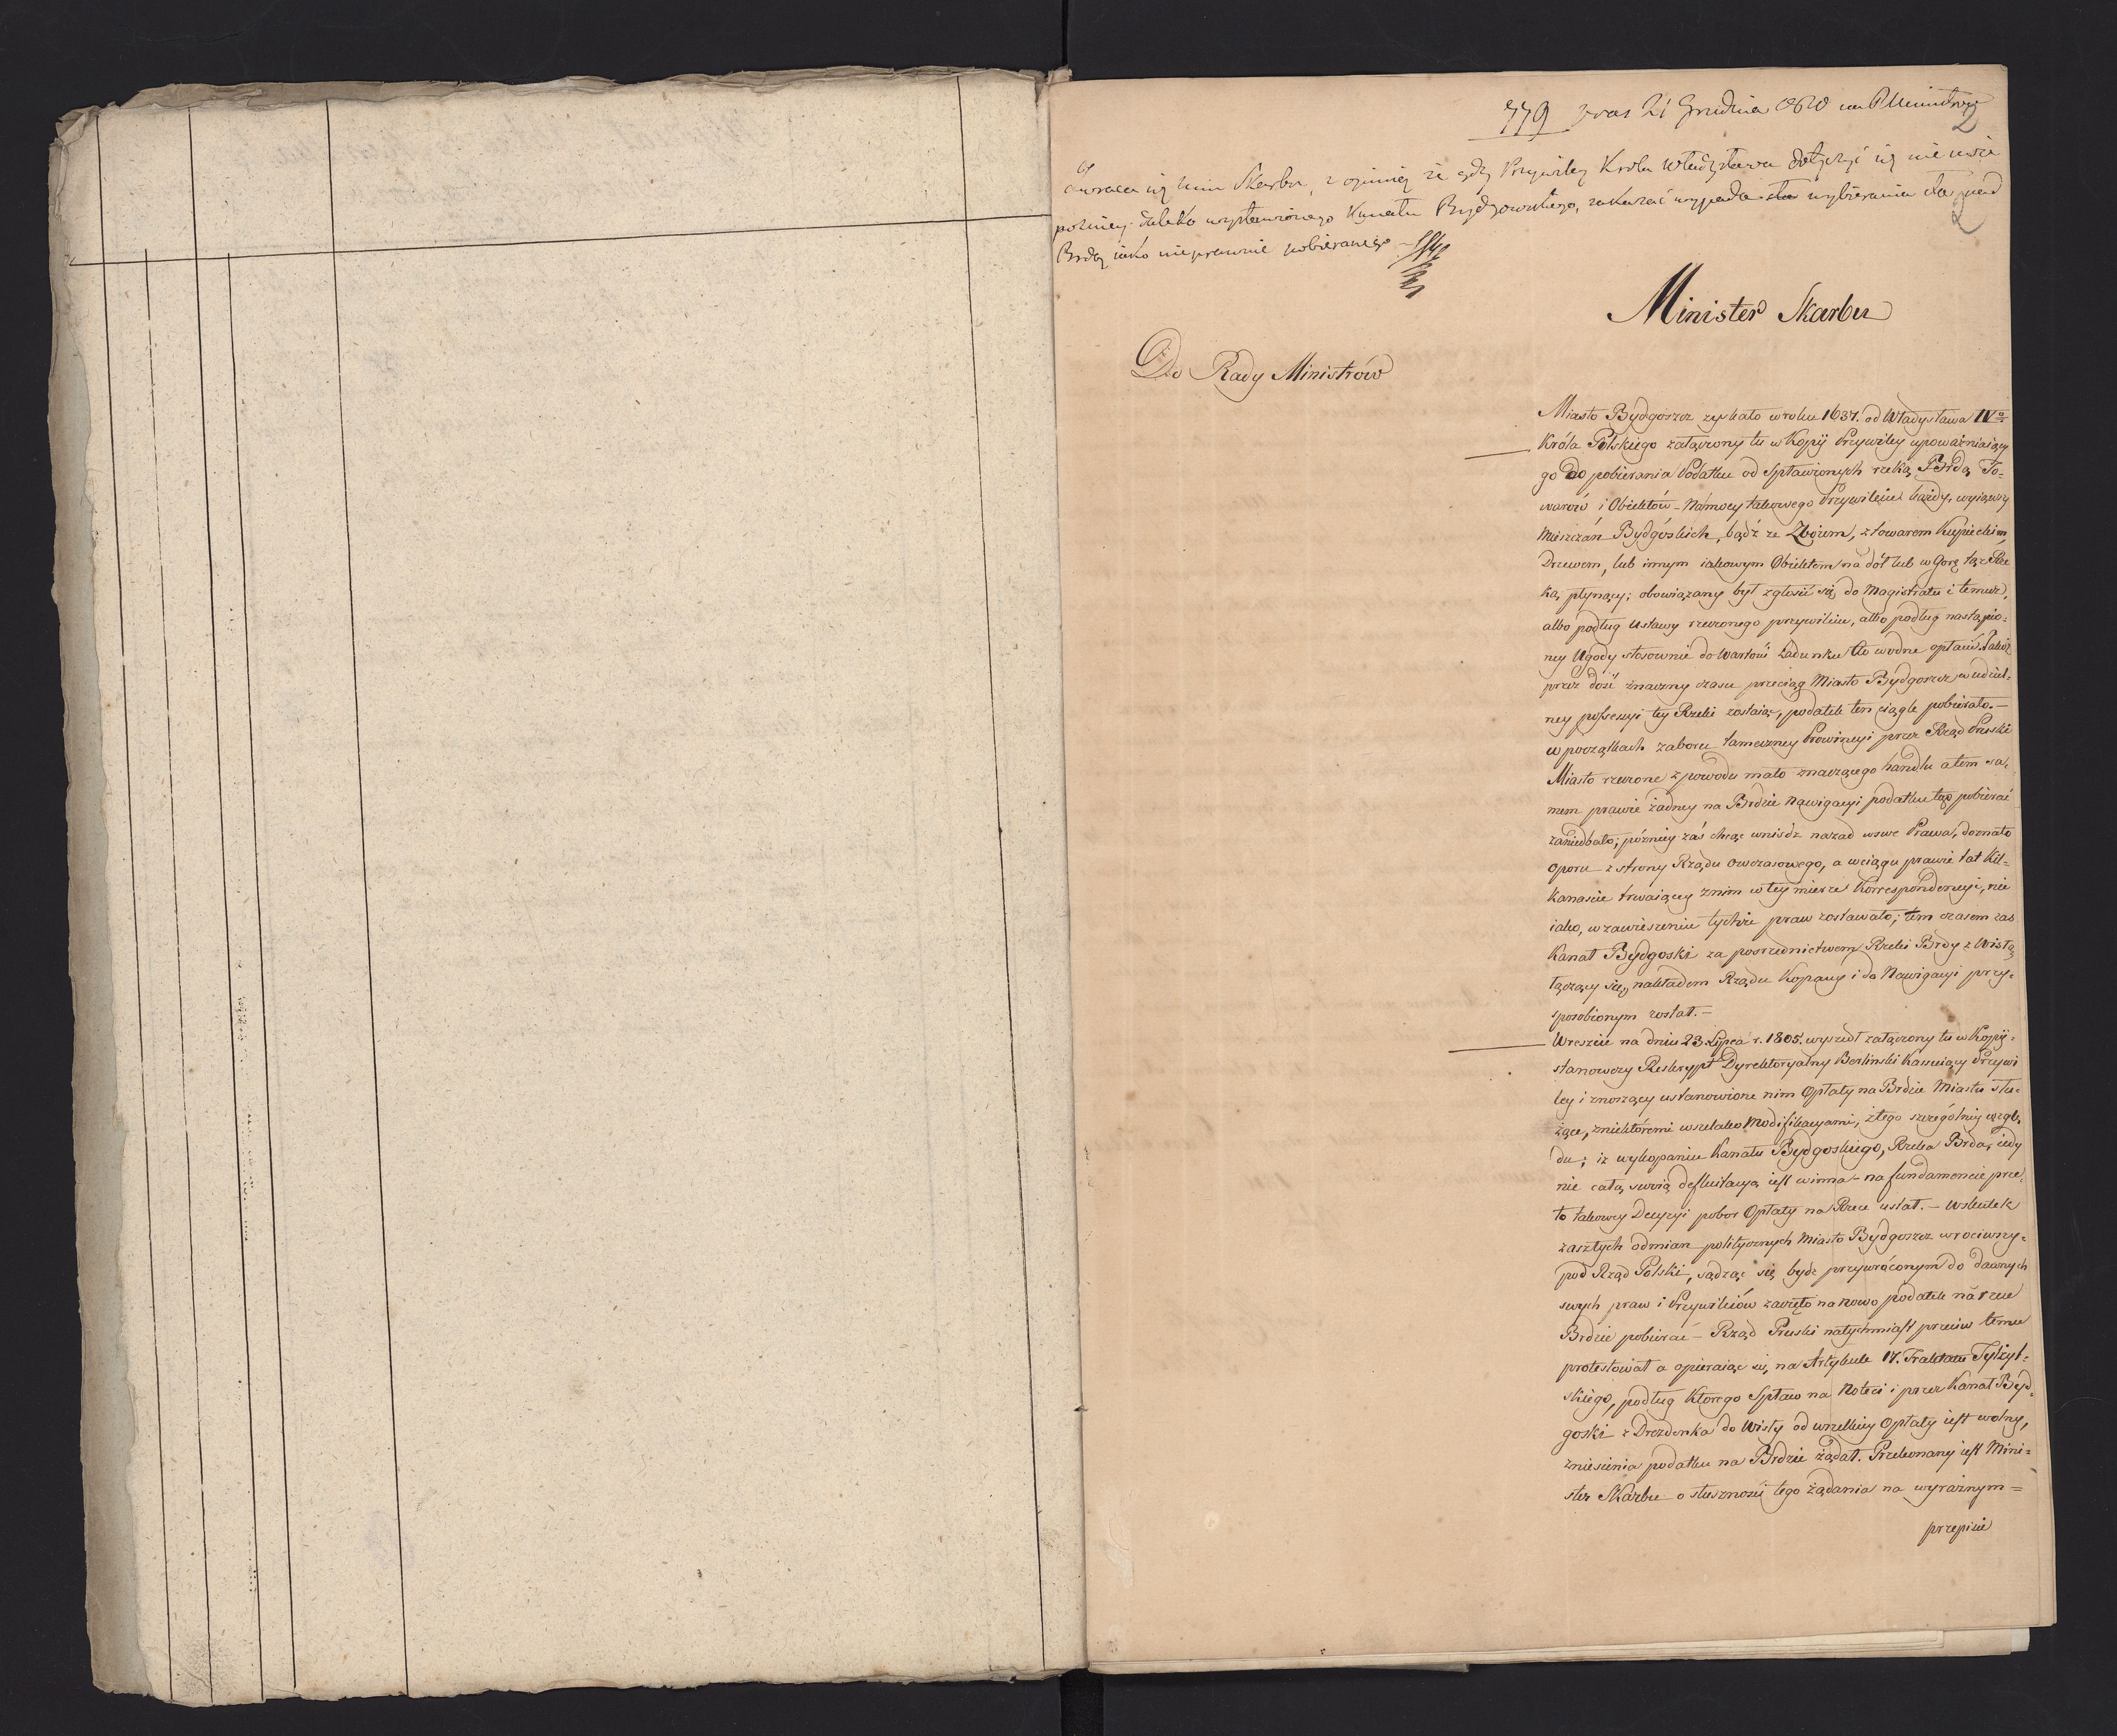 779 21 Grudnia 1810 na R Ministrow
2
zwraca się Skarbu, z opinią że gdy Przywiley Króla Władysława dotyczeć się nie może
poźniey daleko wystawionego Kanału Bydgowskiego, zakazać wypada wybierania cła nad
2
Brdą iako nieprawnie pobieranego –
Minister Skarbu
Do Rady Ministrów
Miasto Bydgoszcz zyskało w roku 1637. od Władysława IVo
Króla Polskiego załączony tu w Kopij Przywiley upoważniaiący
go do pobierania Podatku od Spławionych rzeką Brdą To=
warów i Obiektów – Na mocy takowego Przywileiu każdy, wyiąwszy
Mieszczan Bydgoskich, bądź ze Zbożem, z towarem Kupieckim,
Drzewem, lub innym iakowym Obiektem na dół lub w Gorę tąż Rze
ką płynący; obowiązany był zgłosić się do Magistratu i temuż,
albo podług Ustawy rzeczonego przywileiu, albo podług nastąpio=
ney Ugody stosownie do Wartości Ładunku Cło wodne opłacić. Jakoż
przez dość znaczny czasu przeciąg Miasto Bydgoszcz w udziel=
ney possessyi tey Rzeki zostaiąc, podatek ten ciągle pobierało. –
w początkach zaboru tameczney Prowincyi przez Rząd Pruski
Miasto rzeczone z powodu mało znaczącego handlu a tem sa=
mem prawie żadney na Brdzie Nawigacyi podatku tego pobierać
zaniedbało; późniey zaś chcąc wniśdz nazad w swe Prawa, doznało
oporu z strony Rządu owczasowego, a w ciągu prawie lat Kil=
kanaście trwaiącey z nim w tey mierze Korrespondencyi, nie
iako, w zawieszeniu tychże praw zostawało; tem czasem zaś
Kanał Bydgoski za posrednictwem Rzeki Brdy z Wisłą
łączący się, nakładem Rządu Kopany i do Nawigacyi przy=
sposobionym został. –
Wreszcie na dniu 23 Lipca r. 1805. wyszedł załączony tu w Kopij=
stanowczy Reskrypt Dyrektoryalny Berlinski Kassuiący Przywi
ley i znoszący ustanowione nim Opłaty na Brdzie Miastu słu=
żące, z niektóremi wszelako Modifikacyami; z tego szczególniey wzglę
du; iż wykopaniu Kanału Bydgoskiego, Rzeka Brda, iedy
nie całą swoią defluitacyą iest winna – na fundamencie prze=
to takowey Decyzyi pobor Opłaty na Rzece ustał. – Wskutek
zaszłych odmian politycznych Miasto Bydgoszcz wrociwszy=
pod Rząd Polski, sądząc się bydź przywróconym do dawnych
swych praw i Przywileiów zaczęło na nowo podatek na rzece
Brdzie pobierać – Rząd Pruski natychmiast przeciw temu
protestował a opieraiąc się, na Artykule 17. Traktatu Tylżyt=
skiego, podług Którego Spław na Noteci i przez Kanał Byd=
goski z Drezdenka do Wisły od wszelkiey Opłaty iest wolny,
zniesienia podatku na Brdzie żądał. Przekonany iest Mini=
ster Skarbu o słuszności tego żądania na wyraźnym=
przepisie